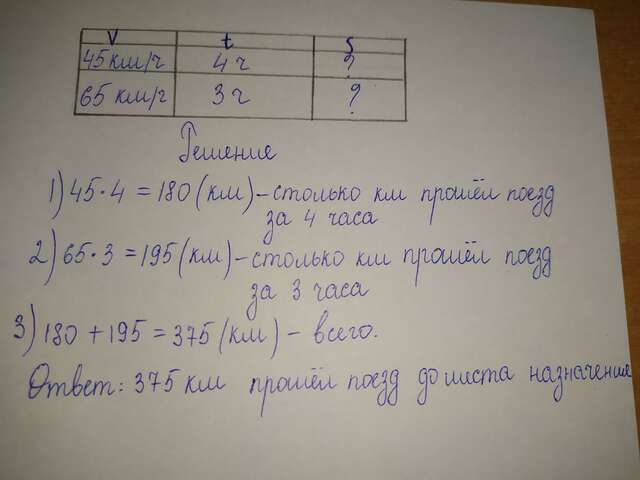 v t S
45 км/ч 4 ч ?
65 км/ч 3 ч ?
Решение
1) 45·4 = 180 (км) – столько км прошёл поезд
за 4 часа
2) 65·3 = 195 (км) – столько км прошёл поезд
за 3 часа
3) 180 + 195 = 375 (км) – всего.
Ответ: 375 км прошёл поезд до места назначения